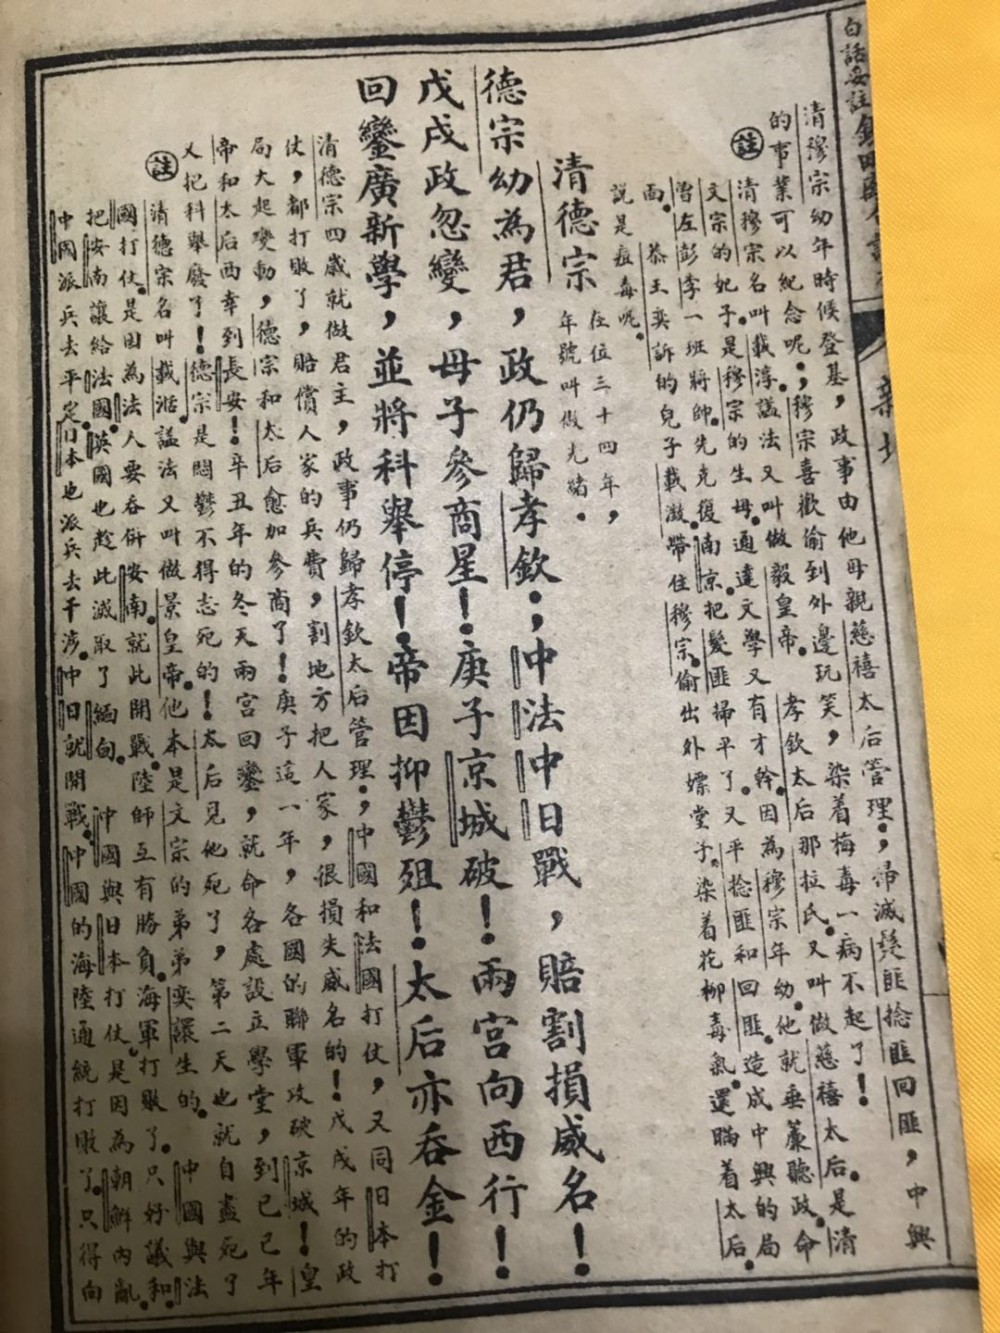 白話 註
清穆宗幼年時候登基，政事由他母親慈禧太后管理；，帚滅髮匪捻匪回匪，中興
的事業可以紀念呢；，穆宗喜歡偷到外邊玩笑，染着梅毒一病不起了！
註 清穆宗名叫載淳。諡法又叫做毅皇帝。孝欽太后那拉氏。又叫做慈禧太后。是清
文宗的妃子。是穆宗的生母。通達文學又有才幹。因為穆宗年幼。他就垂簾聽政。命
曾左彭李一班將帥。先克復南京。把髮匪掃平了。又平捻匪和回匪。造成中興的局
面。恭王奕訴的兒子載澂。帶住穆宗。偷出外嫖堂子。染着花柳毒氣。還瞞着太后。
說是痘毒呢。
清德宗 在位三十四年，
年號叫做光緒。
德宗幼為君，政仍歸孝欽；，中法中日戰，賠割損威名！
戊戌政忽變，母子參商星！庚子京城破！兩宮向西行！
回鑾廣新學，並將科舉停！帝因抑鬱殂！太后亦吞金！
清德宗四歲就做君主，政事仍歸孝欽太后管理；，中國和法國打仗，又同日本打
仗，都打敗了，賠償人家的兵費，割地方把人家，很損失威名的！戊戌年的政
局大起變動，德宗和太后愈加參商了！庚子這一年，各國的聯軍攻破京城！皇
帝和太后西幸到長安！辛丑年的冬天兩宮回鑾，就命各處設立學堂，到已巳年
又把科舉廢了！德宗是悶鬱不得志死的！太后見他死了，第二天也就自盡死了
註 清德宗名叫載湉。諡法又叫做景皇帝。他本是文宗的弟弟奕譞生的。中國與法
國打仗。是因為法人要吞併安南。就此開戰。陸師互有勝負。海軍打敗了。只好議和。
把安南讓給法國。英國也趁此滅取了緬甸。中國與日本打仗。是因為朝鮮內亂。
中國派兵去平定。日本也派兵去干涉。中日就開戰。中國的海陸通統打敗了。只得向